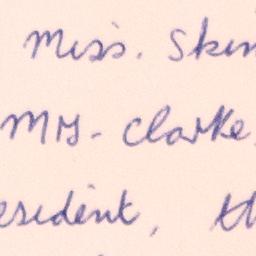 Miss. Skin
Mrs - Clarke,
esident, th